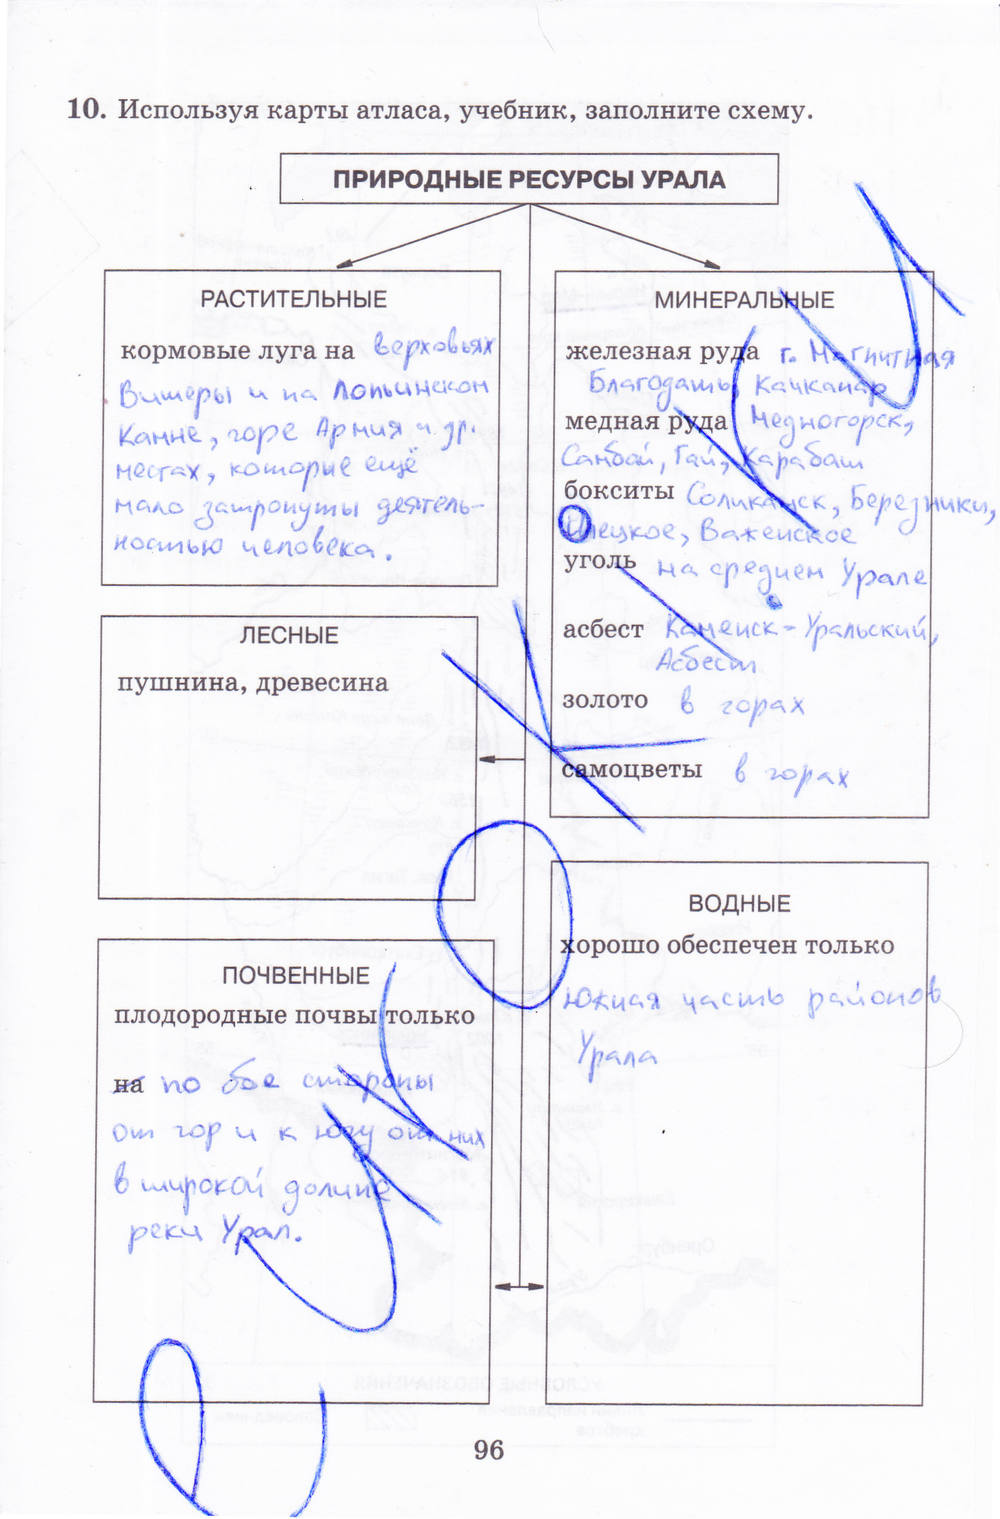 10. Используя карты атласа, учебник, заполните схему.
ПРИРОДНЫЕ РЕСУРСЫ УРАЛА
РАСТИТЕЛЬНЫЕ
кормовые луга на верховьях
Вишеры и на Лопьинском
Камне, горе Армия и др.
местах, которые ещё
мало затронуты деятель-
ностью человека.
МИНЕРАЛЬНЫЕ
железная руда г. Магнитная
Благодать, Качканар
медная руда Медногорск,
Самбай, Гай, Карабаш
бокситы Соликамск, Березники,
Илецкое, Важенское
уголь на среднем Урале
асбест Каменск-Уральский,
Асбест
золото в горах
самоцветы в горах
ЛЕСНЫЕ
пушнина, древесина
ВОДНЫЕ
хорошо обеспечен только
Южная часть районов
Урала
ПОЧВЕННЫЕ
плодородные почвы только
на по бое стороны
от гор и к югу от них
в широкой долине
реки Урал.
96